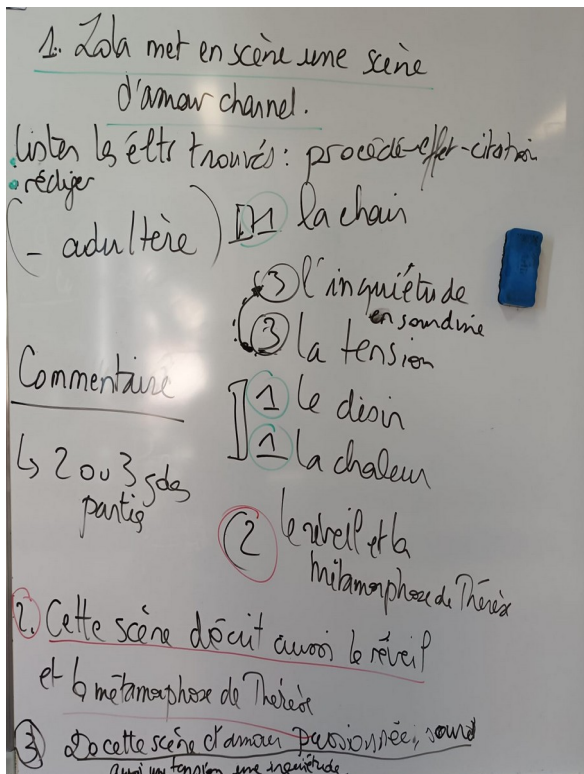 1. Zola met en scène une scène
d'amour charnel.
. lister les élts trouvés : procédé-effet-citation
. rédiger
(- adultère)
1 la chair
3 l'inquiétude
en sourdine
3 la tension
Commentaire
1 le désir
1 la chaleur
↳ 2 ou 3 gdes
parties
2 le réveil et la
métamorphose de Thérèse
2. Cette scène décrit aussi le réveil
et la métamorphose de Thérèse
3 De cette scène d'amour passionnée, sourd
aussi une tension, une inquiétude.